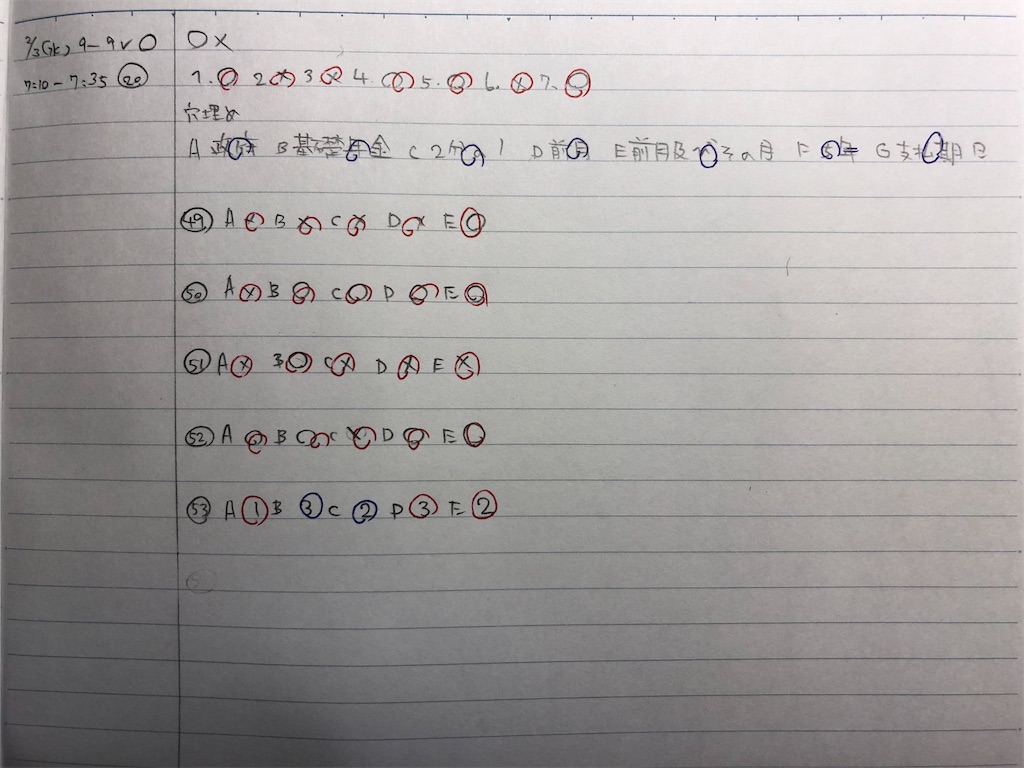 2/3(水) 9-9 ✓ ○
7:10 - 7:35 ⑳
○×
1. ○ 2 × 3 × 4. ○ 5. ○ 6. × 7. ○
穴埋め
A 政府 B 基礎年金 C 2分の1 D 前月 E 前月及びその月 F 5年 G 支払期日
㊾ A B C × D × E ○
㊿ A × B ○ C ○ D ○ E ○
51 A × B ○ C × D × E ×
52 A ○ B ○ C × D ○ E ○
53 A 1 B 3 C 2 D 3 E 2